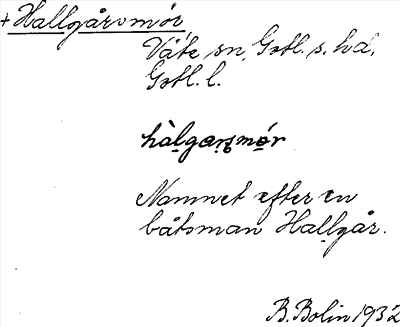 + Hallgårsmór
Väte sn, Gotl. s. hd,
Gotl. l.
hàlgaꞃs̥mo̱r
Namnet efter en
båtsman Hallgår.
B. Bolin 1932